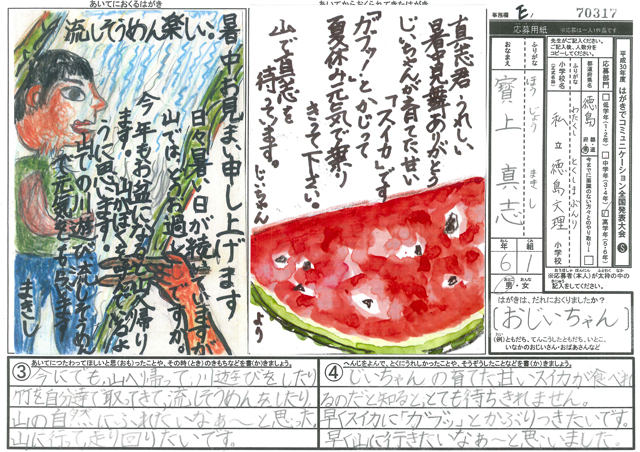 あいてにおくるはがき
暑中お見まい申し上げます
日々暑い日が続いていますが
山ではどうお過しですか。
今年もお盆になったら
流しそうめん楽しい。
まさし
あいてからおくられてきたはがき
直志君、うれしい
暑中見舞ありがとう
じいちゃんが育てた甘い
「スイカ」です
「ガブッ!」とかじって
夏休み元気で乗り
きって下さい。
山で直志を
待ってます。
じいちゃん
より
事務欄 E1 70317
応募用紙
※応募は一人1作品です。
平成30年度 はがきでコミュニケーション全国発表大会 S
先生がご記入ください。
ご記入後、人数分を
コピーしてください。
応募部門
低学年(1・2年)
中学年(3・4年)
高学年(5・6年)
都道府県名
徳島
ふりがな
わたくしりつ とくしまぶんり
小学校名
(正式名称)
私立徳島文理
小学校
ふりがな
ほうじょう まさし
おなまえ
寶上 真志
年 6 組 1
男・女
※応募者(本人)が太枠の中の
記入をしてください。
はがきは、だれにおくりましたか?
おじいちゃん
(例)ともだち、てんこうしたともだち、いとこ、
いなかのおじいさん・おばあさんなど
③ あいてにつたわってほしいと思(おも)ったことや、その時(とき)のきもちなどを書(か)きましょう。
今にでも山へ帰って川遊びをしたり
竹を自分達で取ってきて、流しそうめんをしたり
山の自然にふれたいなぁ〜と思った。
山に行って走り回りたいです。
④ へんじをよんで、とくにうれしかったことや、そうぞうしたことなどを書(か)きましょう。
じいちゃんの育てた甘いスイカが食べれ
るのだと知ると、とても待ちきれません。
早くスイカに「ガブッ」とかぶりつきたいです。
早く山に行きたいなぁ〜と思いました。